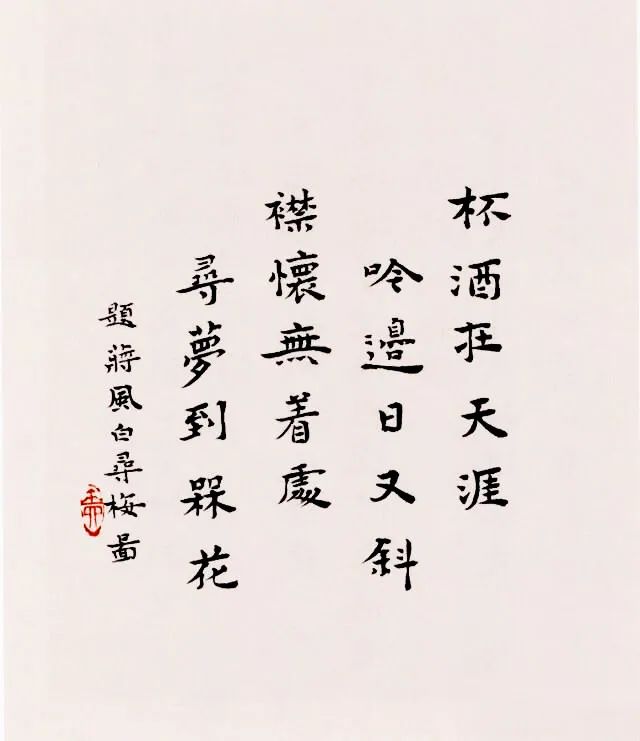 杯酒在天涯
吟邊日又斜
襟懷無着處
尋夢到槑花
題蔣風白尋梅啚